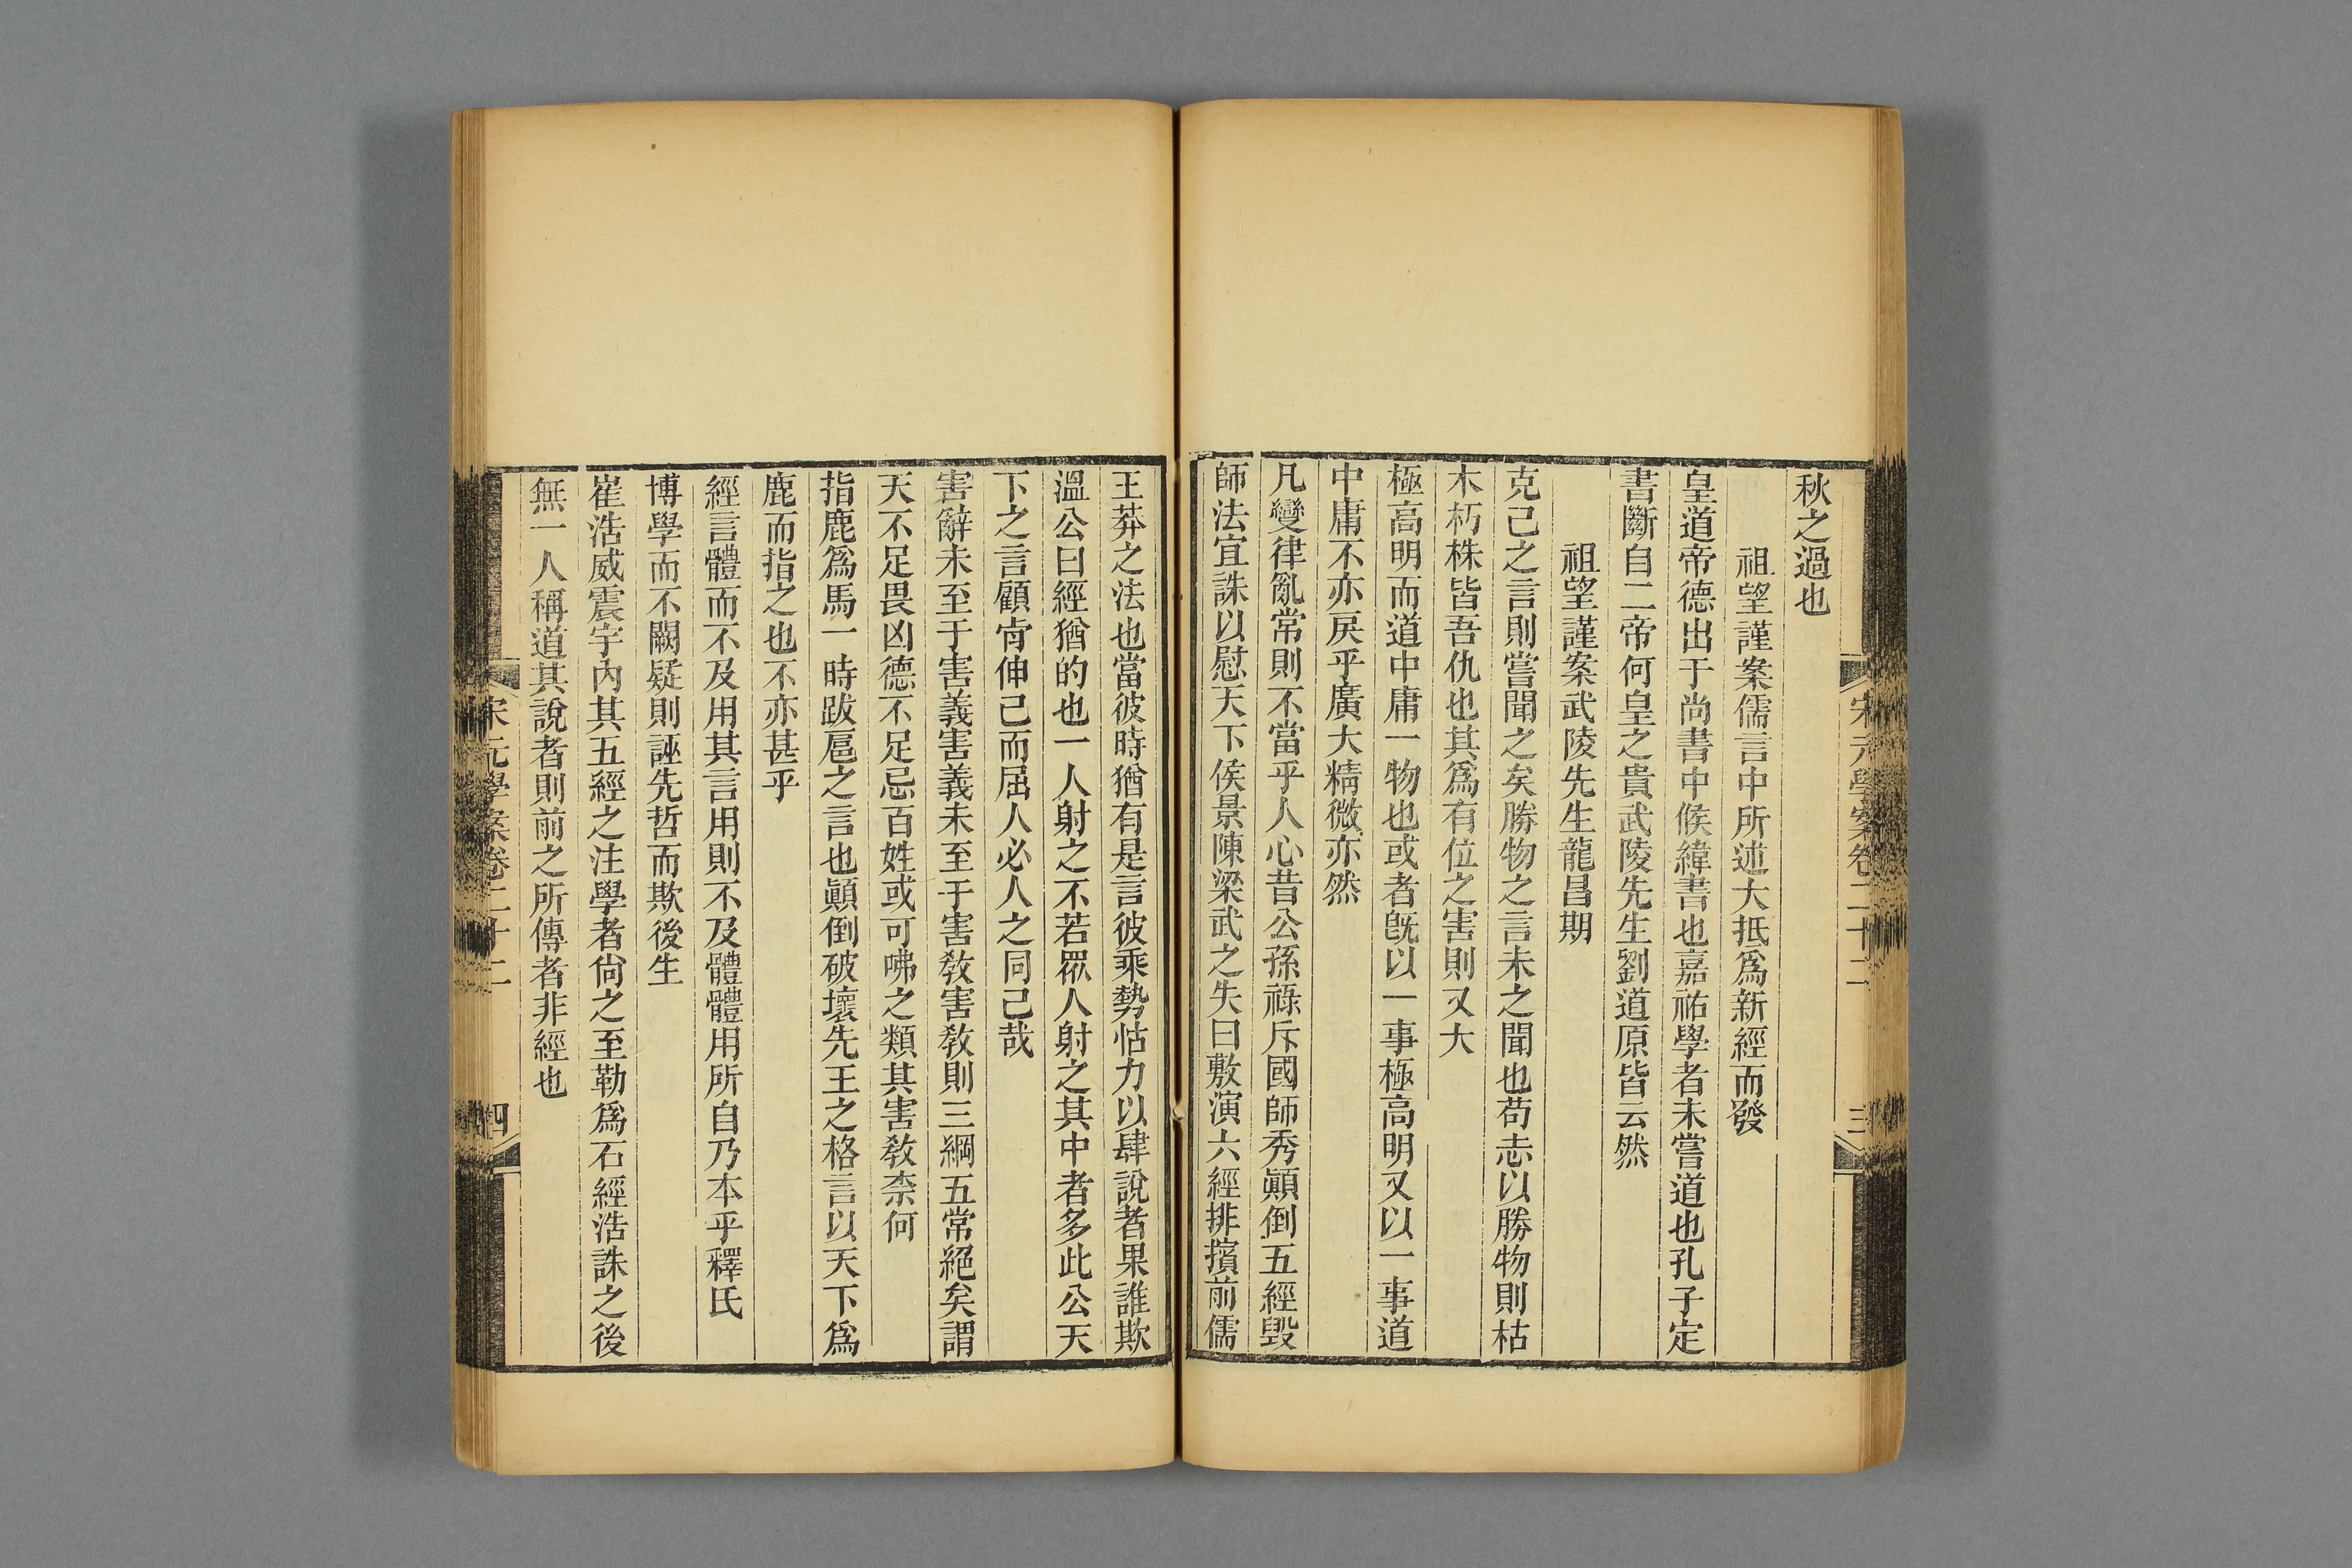 宋元學案卷二十二 三
秋之過也
祖望謹案儒言中所述大抵爲新經而發
皇道帝德出于尚書中候緯書也嘉祐學者未嘗道也孔子定
書斷自二帝何皇之貴武陵先生劉道原皆云然
祖望謹案武陵先生龍昌期
克己之言則嘗聞之矣勝物之言未之聞也苟志以勝物則枯
木朽株皆吾仇也其爲有位之害則又大
極高明而道中庸一物也或者旣以一事極高明又以一事道
中庸不亦戾乎廣大精微亦然
凡變律亂常則不當乎人心昔公孫祿斥國師秀顚倒五經毀
師法宜誅以慰天下侯景陳梁武之失曰敷演六經排擯前儒
王莽之法也當彼時猶有是言彼乘勢怙力以肆說者果誰欺
溫公曰經猶的也一人射之不若眾人射之其中者多此公天
下之言顧肯伸己而屈人必人之同己哉
害辭未至于害義害義未至于害敎害敎則三綱五常絕矣謂
天不足畏凶德不足忌百姓或可咈之類其害敎柰何
指鹿爲馬一時跋扈之言也顚倒破壞先王之格言以天下爲
鹿而指之也不亦甚乎
經言體而不及用其言用則不及體體用所自乃本乎釋氏
博學而不闕疑則誣先哲而欺後生
崔浩威震宇內其五經之注學者尙之至勒爲石經浩誅之後
無一人稱道其說者則前之所傳者非經也
宋元學案卷二十二 四